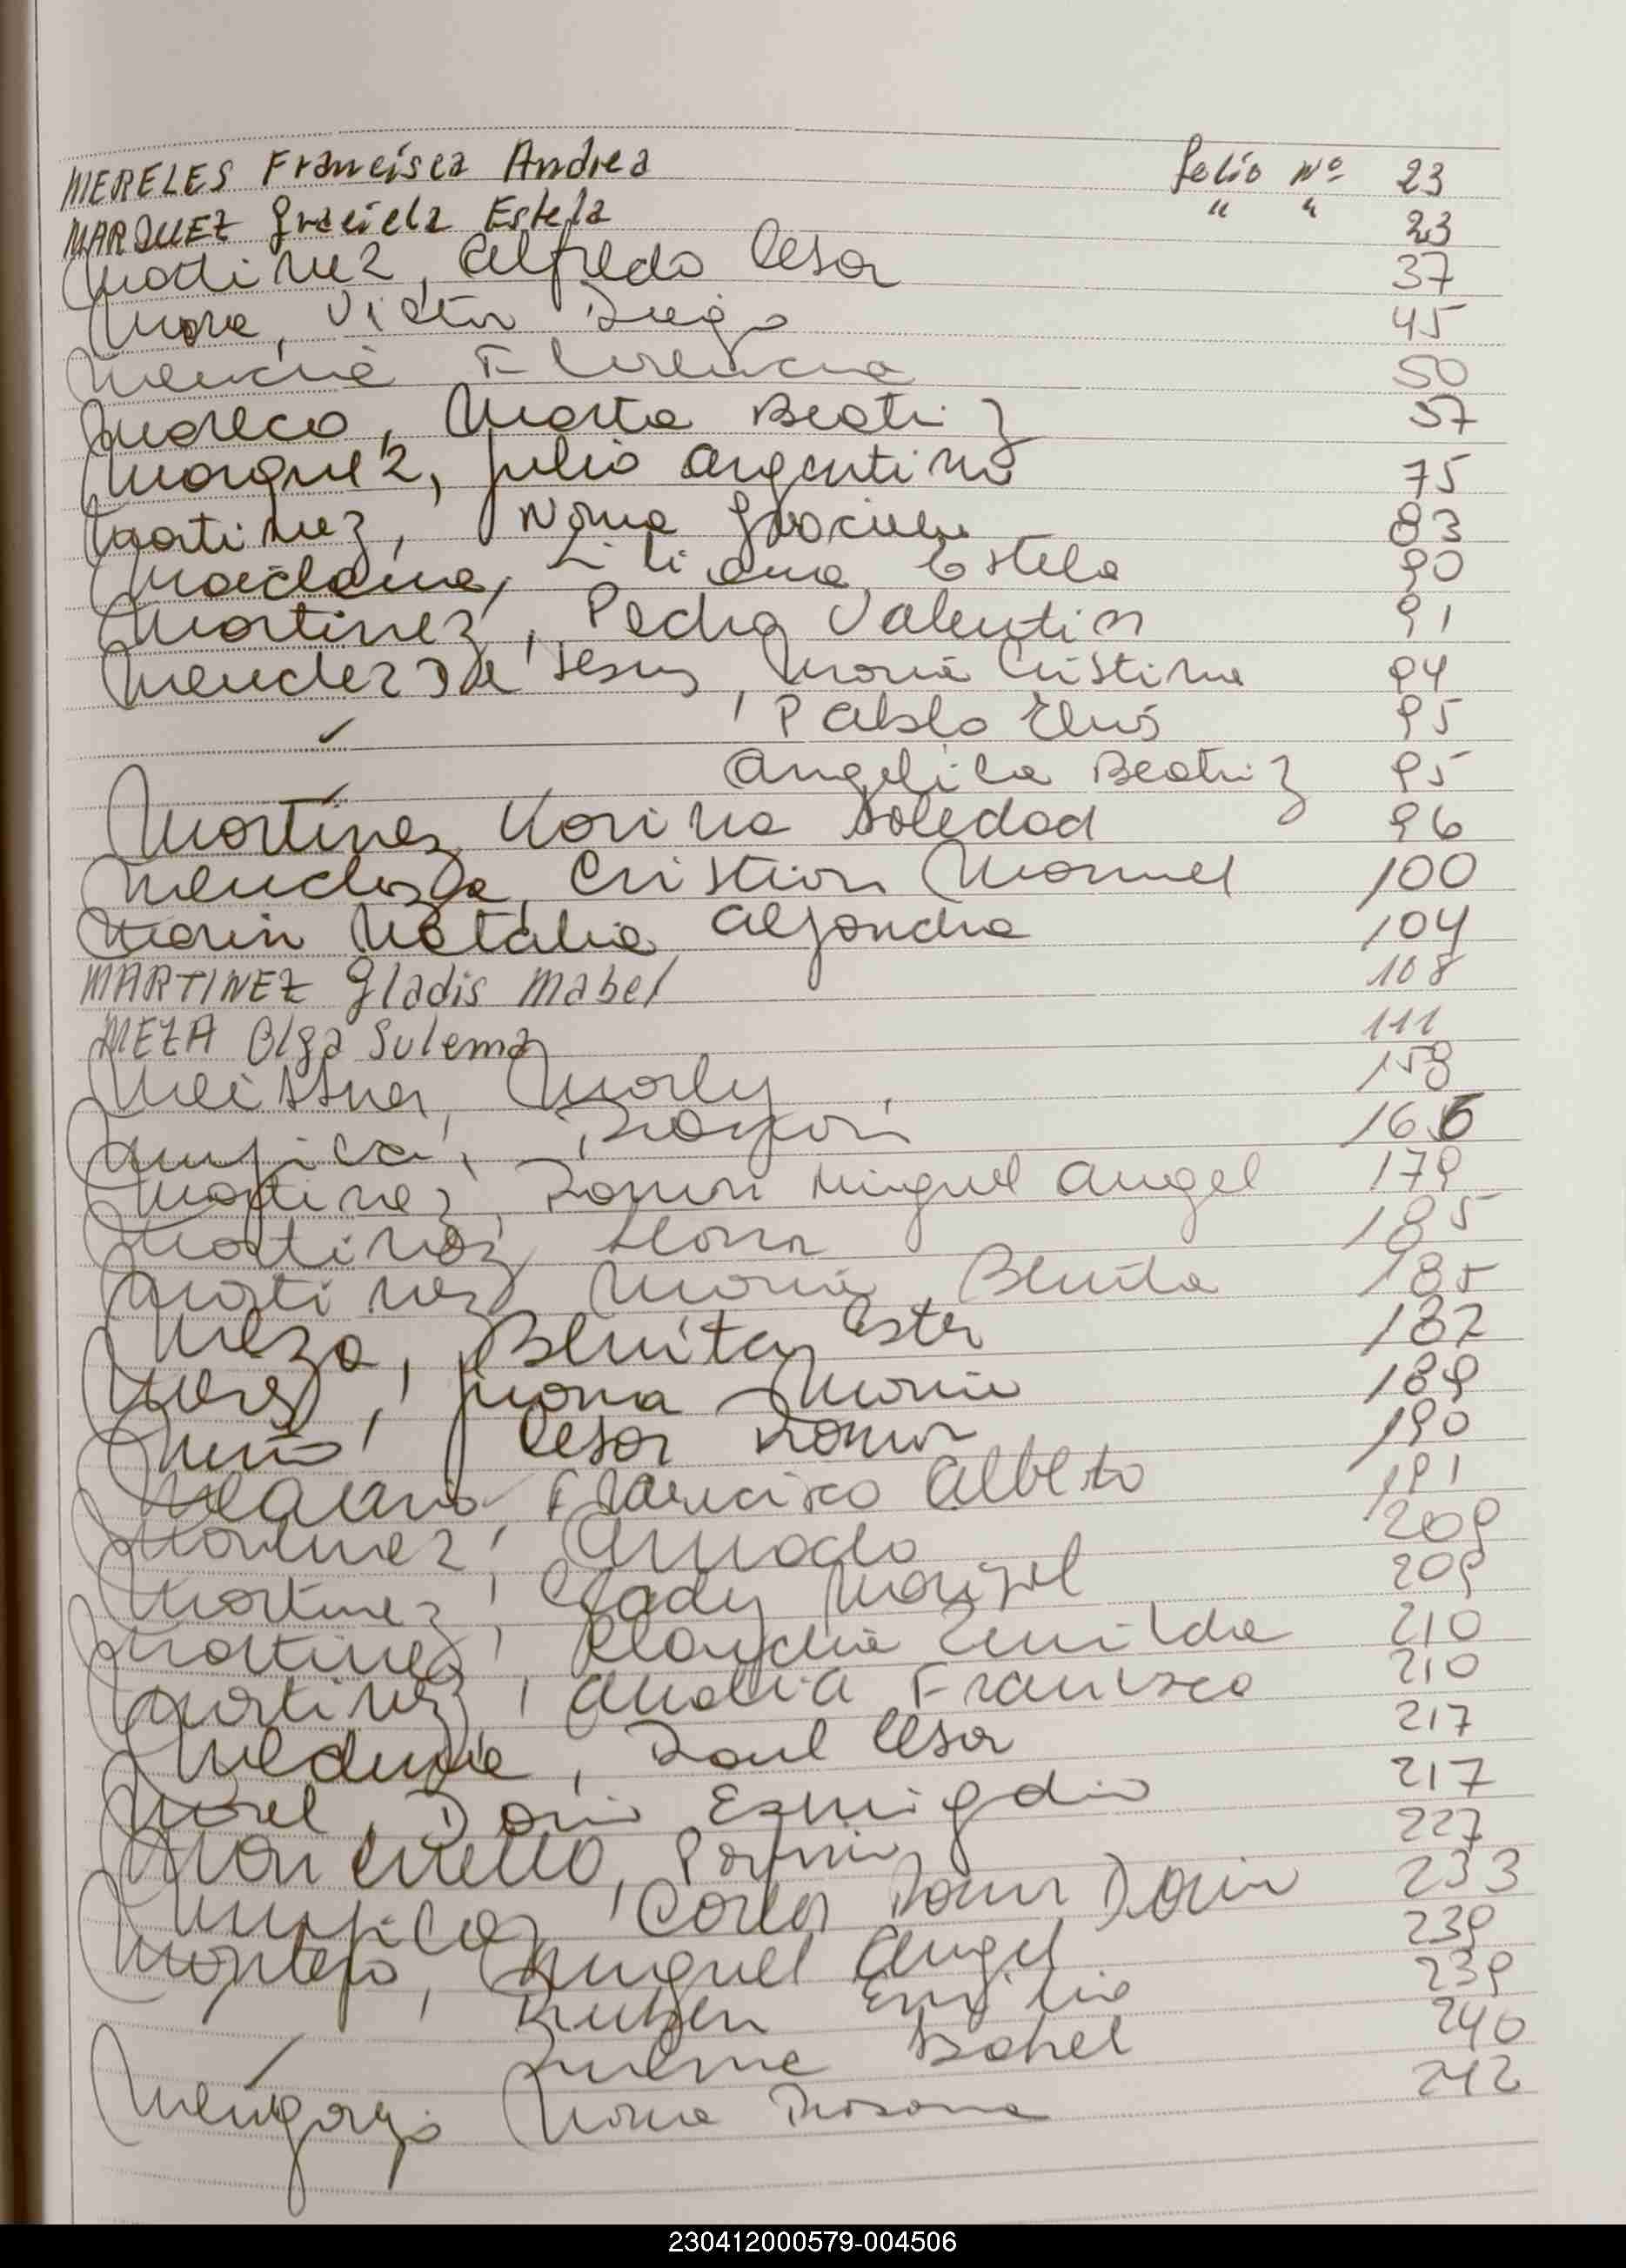 MERELES Francisca Andrea Folio Nº 23
MARQUEZ Graciela Estela " " 23
Martinez, Alfredo Cesar 37
Mora, Victor Diego 45
Florencia 50
Mareco, Marta Beatriz 57
Marquez, Julio Argentino 75
Martinez, Norma Graciela 83
Maidana, Liliana Estela 90
Martinez, Pedro Valentin 91
Mendez De Jesus, Maria Cristina 94
✓ , Pablo Elias 95
✓ Angelica Beatriz 95
Martinez Korina Soledad 96
Mendoza, Cristian Manuel 100
Marin Natalia Alejandra 104
MARTINEZ Gladis Mabel 108
MEZA Olga Sulema 111
Meissner, Marly 158
Mujica, 166
Martinez, Ramon Miguel Angel 179
Martinez, 185
Martinez Maria Benita 185
Meza, Benita Ester 187
, Juana Maria 189
Cesar Ramon 190
Francisco Alberto 191
Martinez, Amado 209
Martinez, Glady Marisol 209
Martinez, Claudia Zunilda 210
Martinez, Amalia Francisca 210
Medina, Raul Cesar 217
Morel, Dario Esmigdio 217
227
Mujica, Carlos Dario 233
Montejo, Miguel Angel 239
, Ruben Emilio 239
✓ Zulema Isabel 240
Maria Rosana 242
230412000579-004506